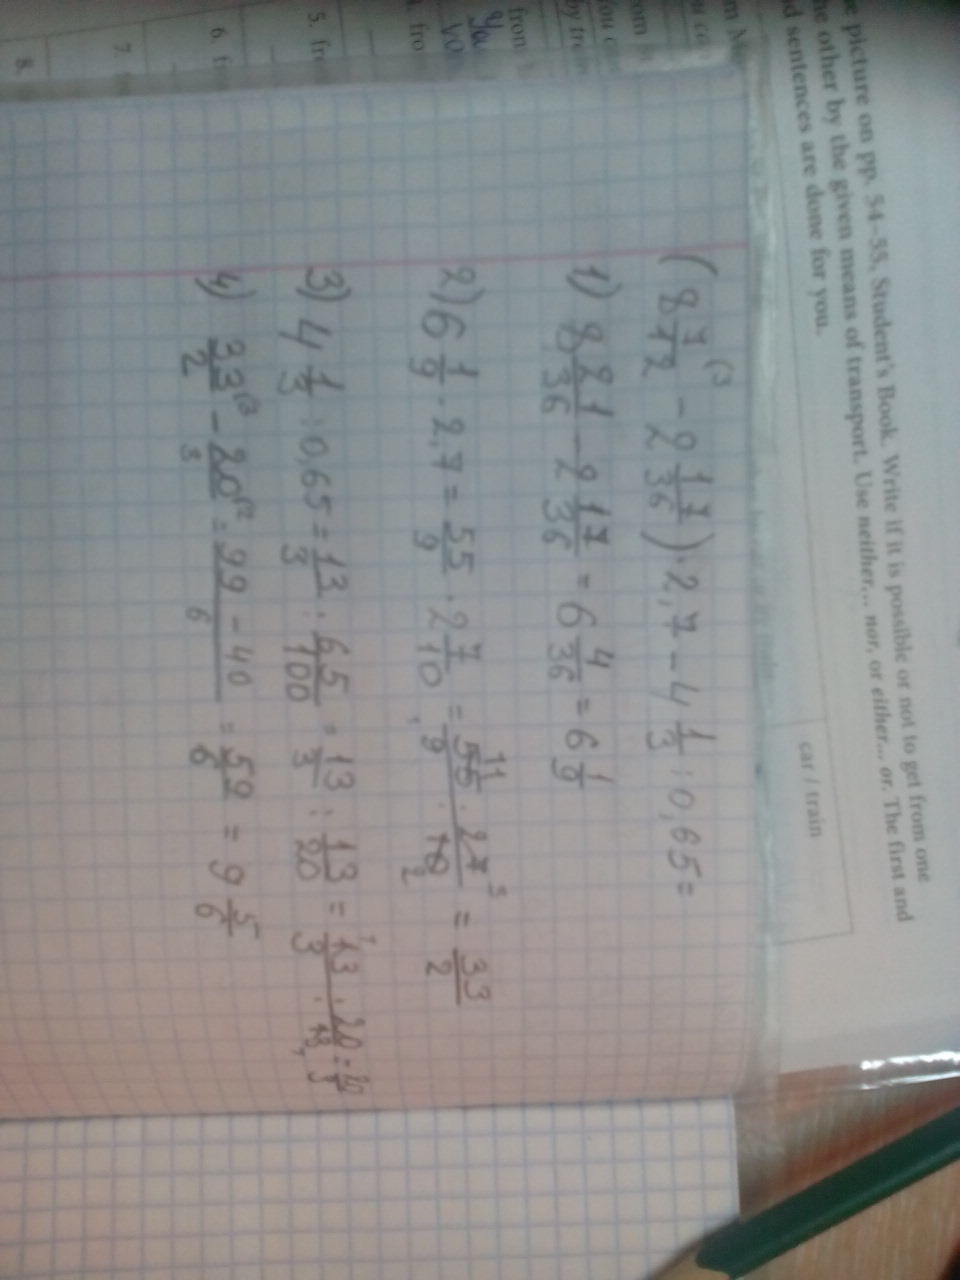 e picture on pp. 54–55, Student's Book. Write if it is possible or not to get from one
he other by the given means of transport. Use neither... nor, or either... or. The first and
d sentences are done for you.
car / train
from
by tr
fro
5. fr
6. f
7.
8.
(8 7/12 (3 - 2 17/36) · 2,7 - 4 1/3 : 0,65 =
1) 8 21/36 - 2 17/36 = 6 4/36 = 6 1/9
2) 6 1/9 · 2,7 = 55/9 · 2 7/10 = 55 11 · 27 3 / 9 1 · 10 2 = 33/2
3) 4 1/3 : 0,65 = 13/3 : 65/100 = 13/3 : 13/20 = 13 1 · 20 / 3 · 13 1 = 20/3
4) 33/2 (3 - 20/3 (2 = 99 - 40 / 6 = 59/6 = 9 5/6